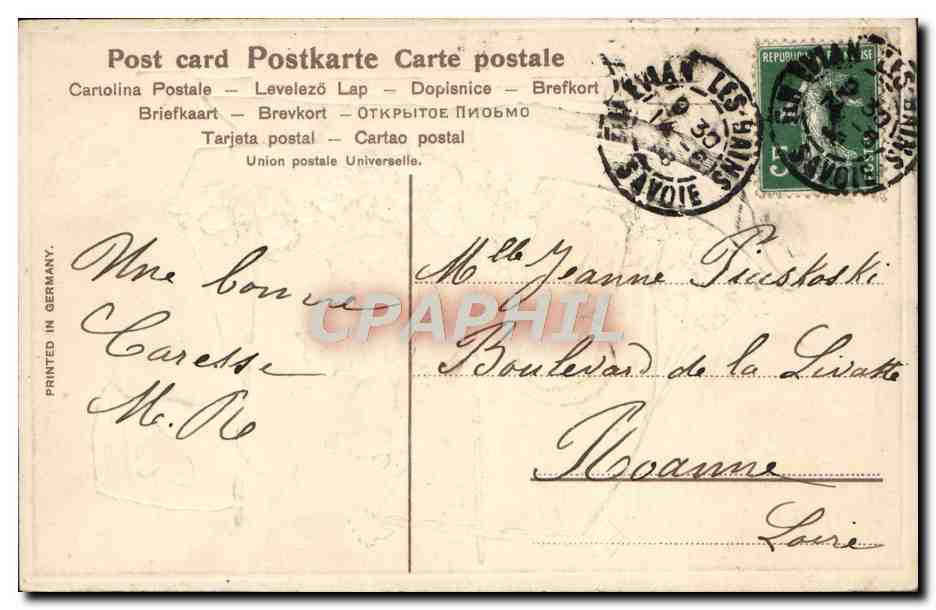 Post card Postkarte Carte postale
Cartolina Postale — Levelező Lap — Dopisnice — Brefkort
Briefkaart — Brevkort — ОТКРЫТОЕ ПИСЬМО
Tarjeta postal — Cartao postal
Union postale Universelle.
EVIAN-LES-BAINS
SAVOIE
REPUBLIQUE FRANÇAISE
5
POSTES
EVIAN-LES-BAINS
SAVOIE
PRINTED IN GERMANY.
Une bonne
Caresse
M. R
Mlle Jeanne Piuskoski
Boulevard de la Livatte
Roanne
Loire
CPAPHIL